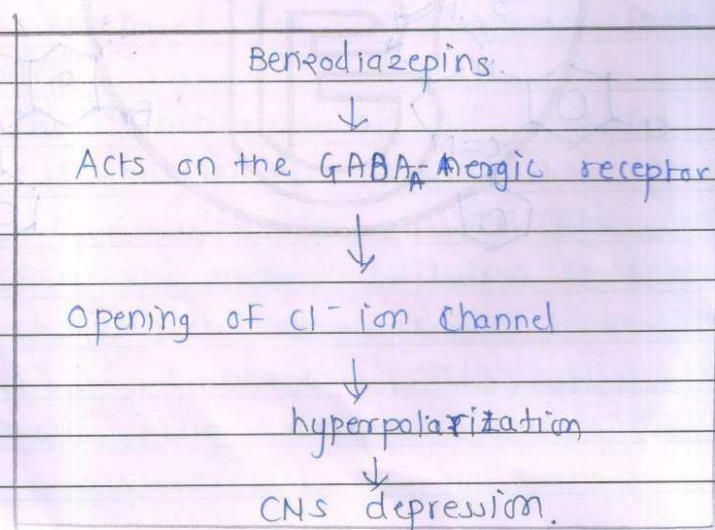 Benzodiazepins.
↓
Acts on the GABA_A-nergic receptor
↓
Opening of Cl⁻ ion channel
↓
hyperpolarization
↓
CNS depression.